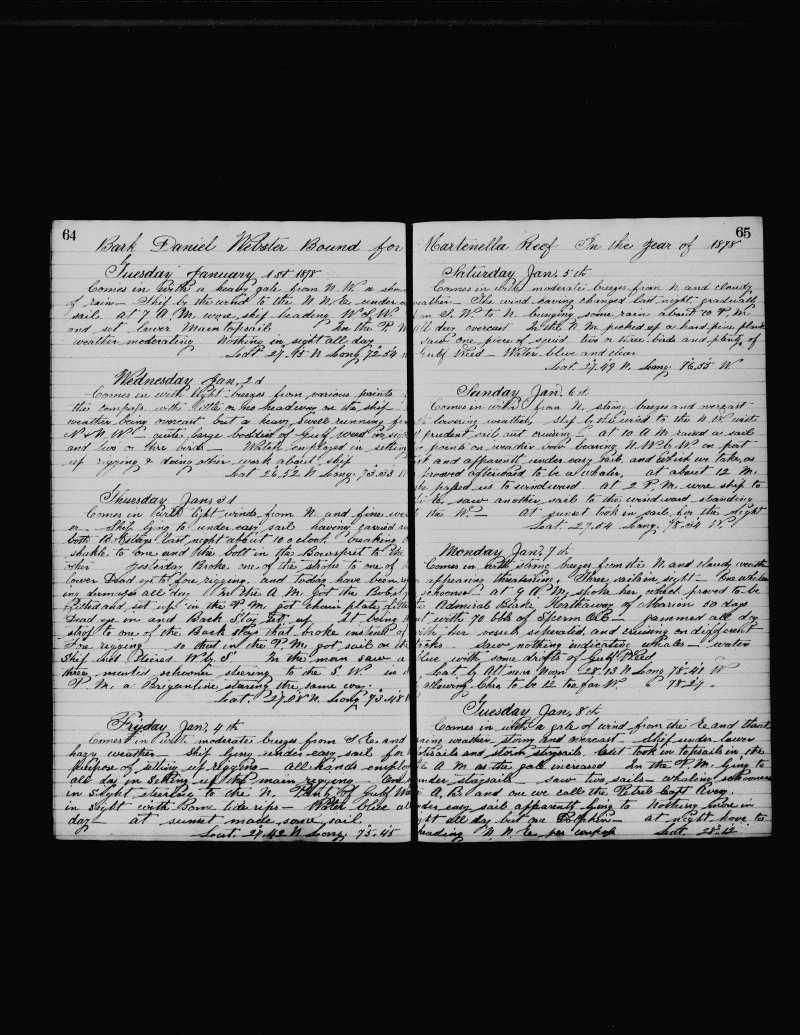 64
Bark Daniel Webster Bound for
Tuesday January 1st 1878
Comes in with a heavy gale from N.W. a
of rain — Ship by the wind to the N.N.E. under
sail at 7 A.M. wore ship heading W.S.W.
and set lower Maintopsail In the P.M
weather moderating Nothing in sight all day
Lat 27.45 N Long 72.54
Wednesday Jan, 2d
Comes in with light breezes from various points
the compass with little or no headway on the ship
weather being overcast but a heavy swell running
N & N.W — quite large bodies of Gulf weed in
and two or three birds — Watch employed in setting
up rigging & doing other work about ship
Lat 26.52 N Long. 73.33
Thursday Jan, 3d
Comes in with light winds from N. and fine
Ship lying to under easy sail having carried
both Bobstays last night about 10 o'clock breaking
shackle to one and the bolt in the Bowsprit to the
other yesterday Broke one of the straps to one of
lower Dead eyes to fore rigging. and today have been
ing damages all day In the A.M. Got the Bobstay
fitted and set up in the P.M. got chain plate
Dead eye in and Back Stay set up It being
strap to one of the Back stays that broke instead of
Fore rigging so that in the P.M. got sail on
Ship and steered W. by S. In the morn saw a
three masted schooner steering to the S.W. in
P.M. a Brigantine steering the same way.
Lat. 27.08 N Long 73.48
Friday Jan, 4th
Comes in with moderate breezes from S.E. and
hazy weather — Ship lying under easy sail for
Purpose of setting up rigging — All hands
all day in setting up the main rigging — One
in sight steering to the N. of Gulf
in sight with some tide rips — Water blue
day — at sunset made some sail
Lat. 27.42 N Long, 75.45
65
Martenella Reef In the year of 1878
Saturday Jan. 5th
Comes in with moderate breezes from N. and cloudy
weather — The wind having changed last night gradually
from S.W. to N. bringing some rain about 10 P.M.
day overcast In the A.M. picked up a hard pine plank
saw one piece of two or three birds and plenty of
Gulf Weed — Water blue and clear
Lat. 27.49 N. Long. 76.55 W
Sunday Jan. 6th
Comes in with from N. strong breezes and overcast
lowering weather, Ship by the wind to the N.W. with
prudent sail out cruising — at 10 A.M. raised a sail
points on weather bow bearing N.W. by W on port
and apparently under easy sail and which we take, as
proved afterward to be a whaler, at about 12 M.
passed us to windward. At 2 P.M. wore ship to
saw another sail to the windward standing
the W. — at sunset took in sail for the night
Lat. 27.54 Long. 78.34 W
Monday Jan. 7th
Comes in with strong breezes from the N. and cloudy weather
appearing threatening. Three sails in sight — One a whaler
schooner at 9 A.M. spoke her which proved to be
Admiral Blake Hathaway of Marion 50 days
with 70 bbls of Sperm Oil — gammed all day
with her vessels separated, and cruising on different
tacks — saw nothing indicative whales — water
blue with some drifts of Gulf Weed
Lat. by Alt near Noon 28.13 N Long 78.41 W
allowing Chro to be 12 too far W. 78.29
Tuesday Jan, 8th
Comes in with a gale of wind from the E. and
weather, storm and overcast Ship under lower
topsails and storm staysails. took in topsails in the
A.M as the gale increased In the P.M. lying to
under staysail saw two sails — whaling schooners
A.B. and one we call the Petrel Capt Avery.
under easy sail apparently lying to Nothing more in
sight all day but one Dolphin — at night hove to
heading N.N.E. per compass Lat 28.12